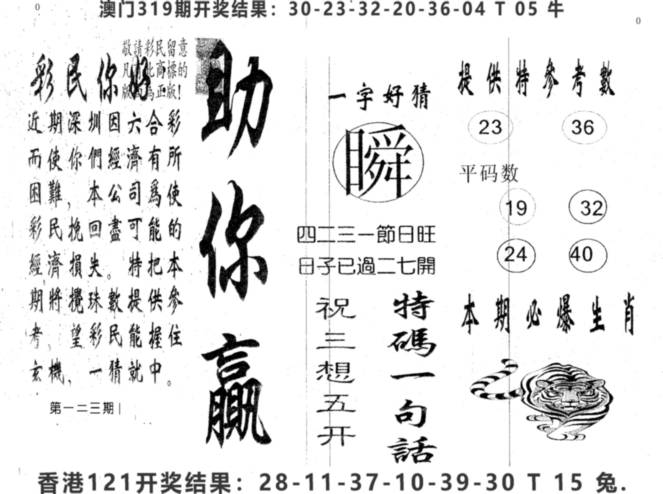 澳门319期开奖结果：30-23-32-20-36-04 T 05 牛
0
0
敬請彩民留意
版為正版！
彩民你好
近期深圳因六合彩
而使你們經濟有所
困難，本公司爲使
彩民挽回盡可能的
經濟損失。特把本
期將攪珠數提供參
考，望彩民能握住
玄機，一猜就中。
第一二三期
助你贏
一字好猜
瞬
四二三一節日旺
日子已過二七開
特碼一句話
祝三想五开
提供特參考數
23
36
平码数
19
32
24
40
本期必爆生肖
香港121开奖结果：28-11-37-10-39-30 T 15 兔.